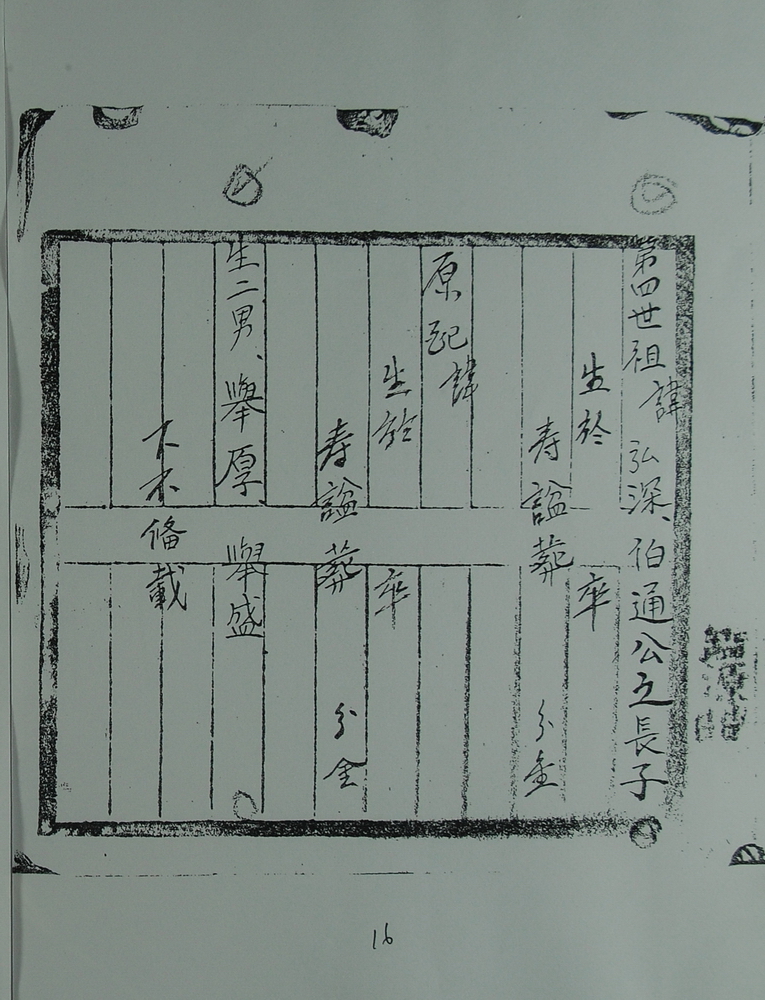 第四世祖諱弘深、伯通公之長子
生於 卒
寿諡葬 分金
原配諱
生於 卒
寿諡葬 分金
生二男、舉厚、舉盛
下不俻載
16